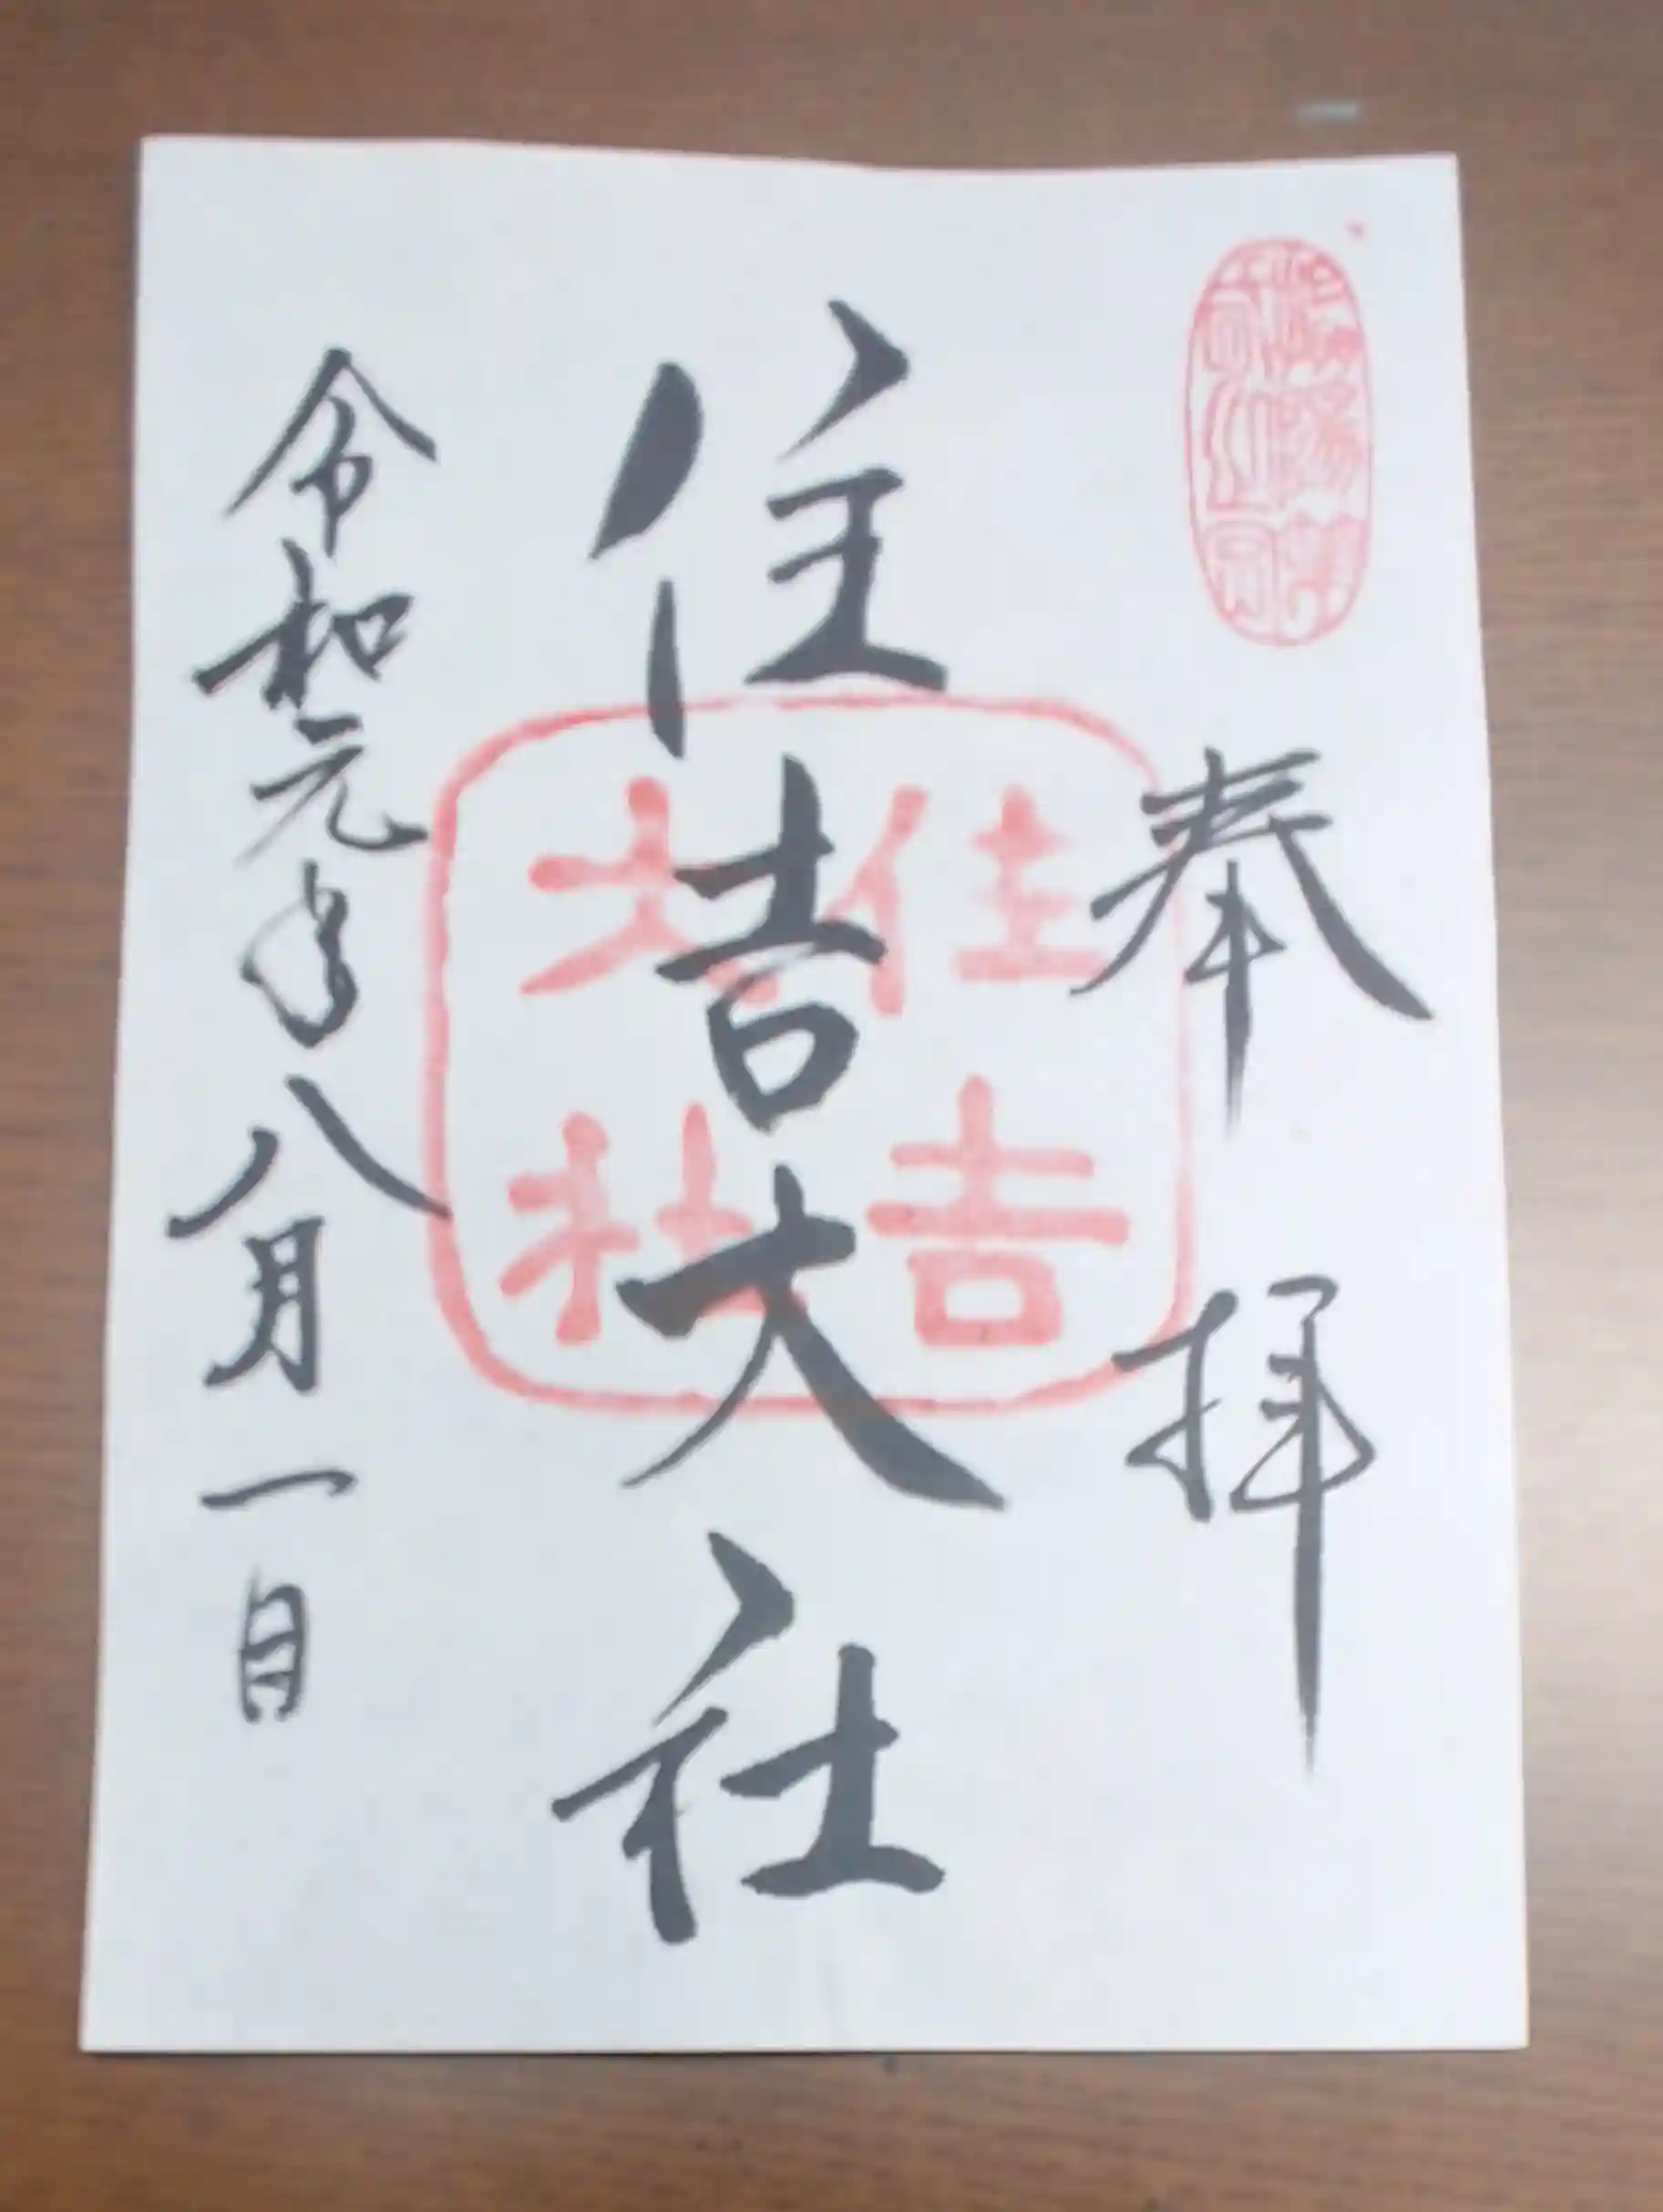 奉拝
住吉大社
住吉
大社
令和元年八月一日